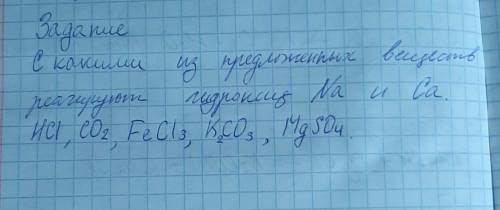 Задание
С какими из предложенных веществ
реагируют гидроксид Na и Ca.
HCl, CO2, FeCl3, K2CO3, MgSO4.